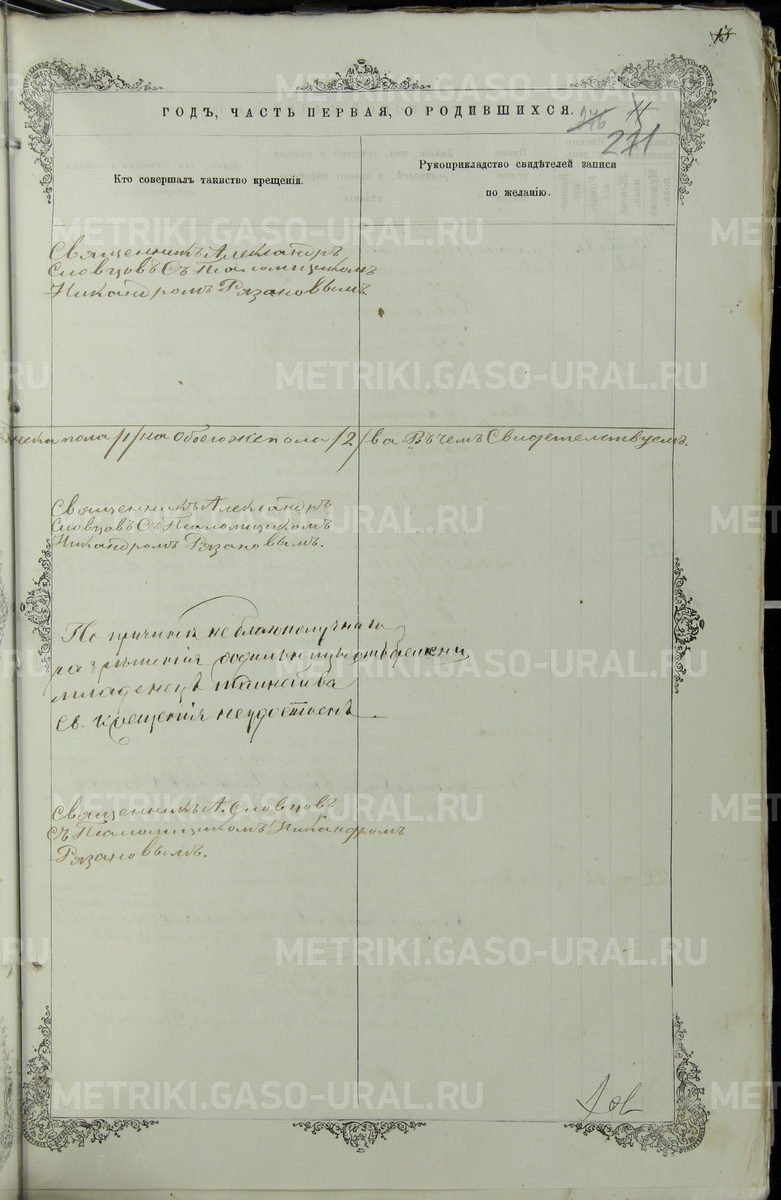 ГОДЪ, ЧАСТЬ ПЕРВАЯ, О РОДИВШИХСЯ.
271
Кто совершалъ таинство крещенія.
Рукоприкладство свидѣтелей записи
по желанію.
Священникъ Александръ
Словцовъ Съ Псаломщикомъ
Никандромъ Рязановымъ.
пола /1/ на Обоегоже пола /2/ ва Въ чемъ Свидетельствуемъ.
Священникъ Александръ
Словцовъ Съ Псаломщикомъ
Никандромъ Рязановымъ.
По причинѣ неблагополучнаго
разрѣшенія родильницы
младенецъ таинства
Св. Крещенія неудостоенъ
Священникъ А. Словцовъ
Съ Псаломщикомъ Никандромъ
Рязановымъ.
METRIKI.GASO-URAL.RU